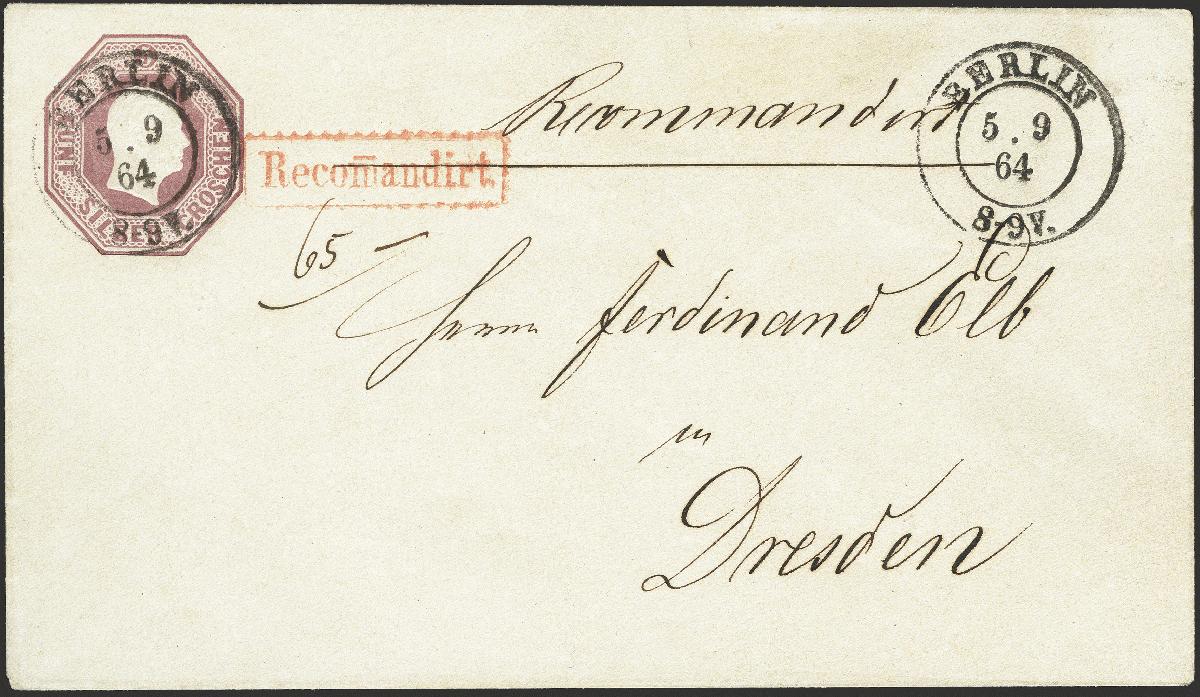 BERLIN
5.9
64
8-9V.
SILBERGROSCHEN
Recom̅andirt.
Recommandirt
BERLIN
5.9
64
8-9V.
65
Herrn Ferdinand Elb
in
Dresden